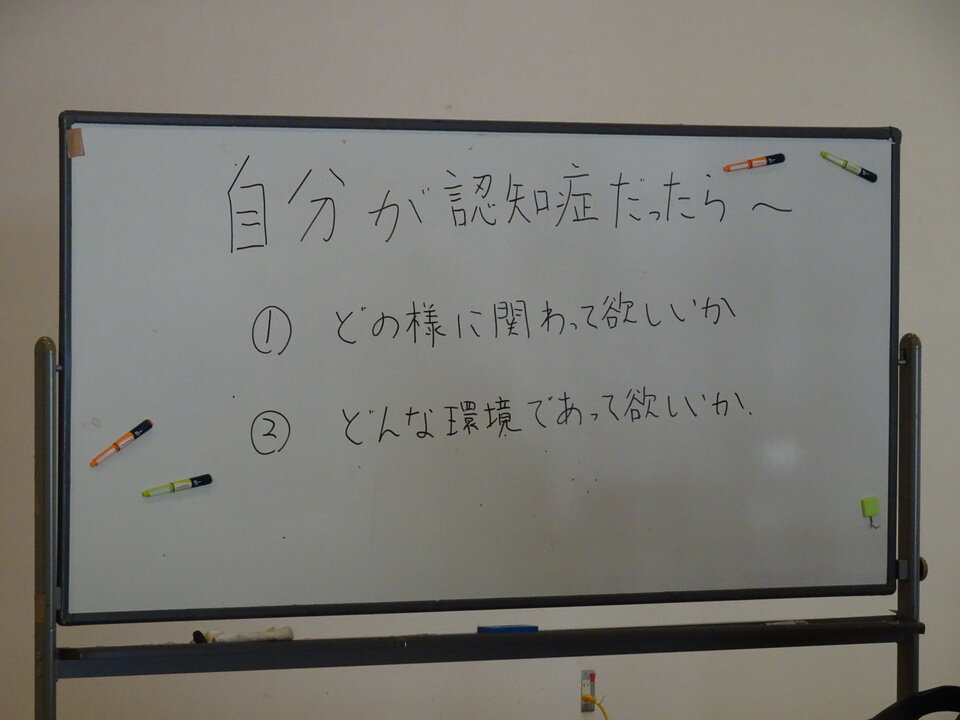 自分が認知症だったら～
① どの様に関わって欲しいか
② どんな環境であって欲しいか.